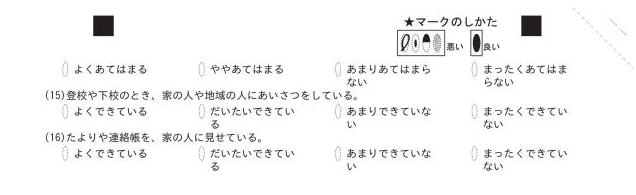 ★マークのしかた
悪い 良い
よくあてはまる ややあてはまる あまりあてはまら まったくあてはま
ない らない
(15)登校や下校のとき、家の人や地域の人にあいさつをしている。
よくできている だいたいできてい あまりできていな まったくできてい
る い ない
(16)たよりや連絡帳を、家の人に見せている。
よくできている だいたいできてい あまりできていな まったくできてい
る い ない